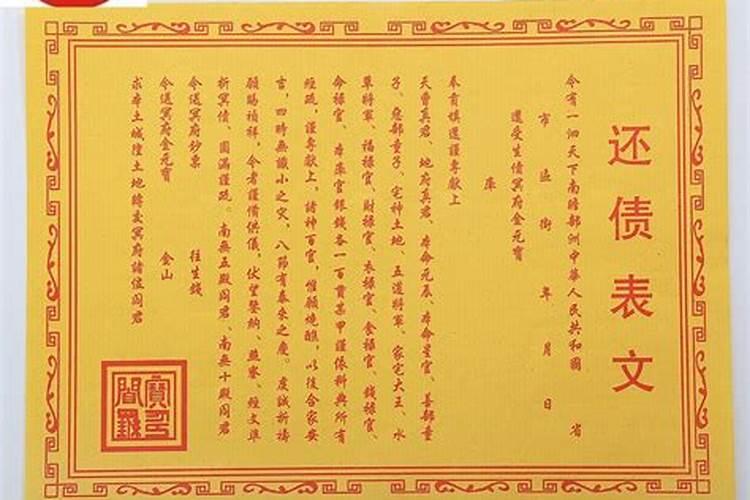 还债表文
今有一泗天下南瞻部洲中華人民共和國 省
市 區 街 年 月 日
還受生債冥府金元寶
庫
奉膏填還謹專献上
天曹真君、地府真君、本命元辰、本命星官、善部童
子、惡部童子、宅神土地、五道將軍、家宅大王、水
草將軍、福禄官、財禄官、衣禄官、食禄官、錢禄官、
命禄官、本庫官銀錢各一百貫某甲謹依科典所有
經疏，謹專献上，諸神百官，惟願燒醮，以後合家安
言，四時無識小之灾，八節有泰來之慶。虔誠祈禱
願賜禎祥，今者謹備供儀，伏望鑒納、燕寥、經文準
折冥債、圓滿謹疏。南無五殿阎君、南無十殿阎君
今送冥府鈔票 往生錢
今送冥府金元寶 金山
求本土城隍土地轉交冥府諸位阎君